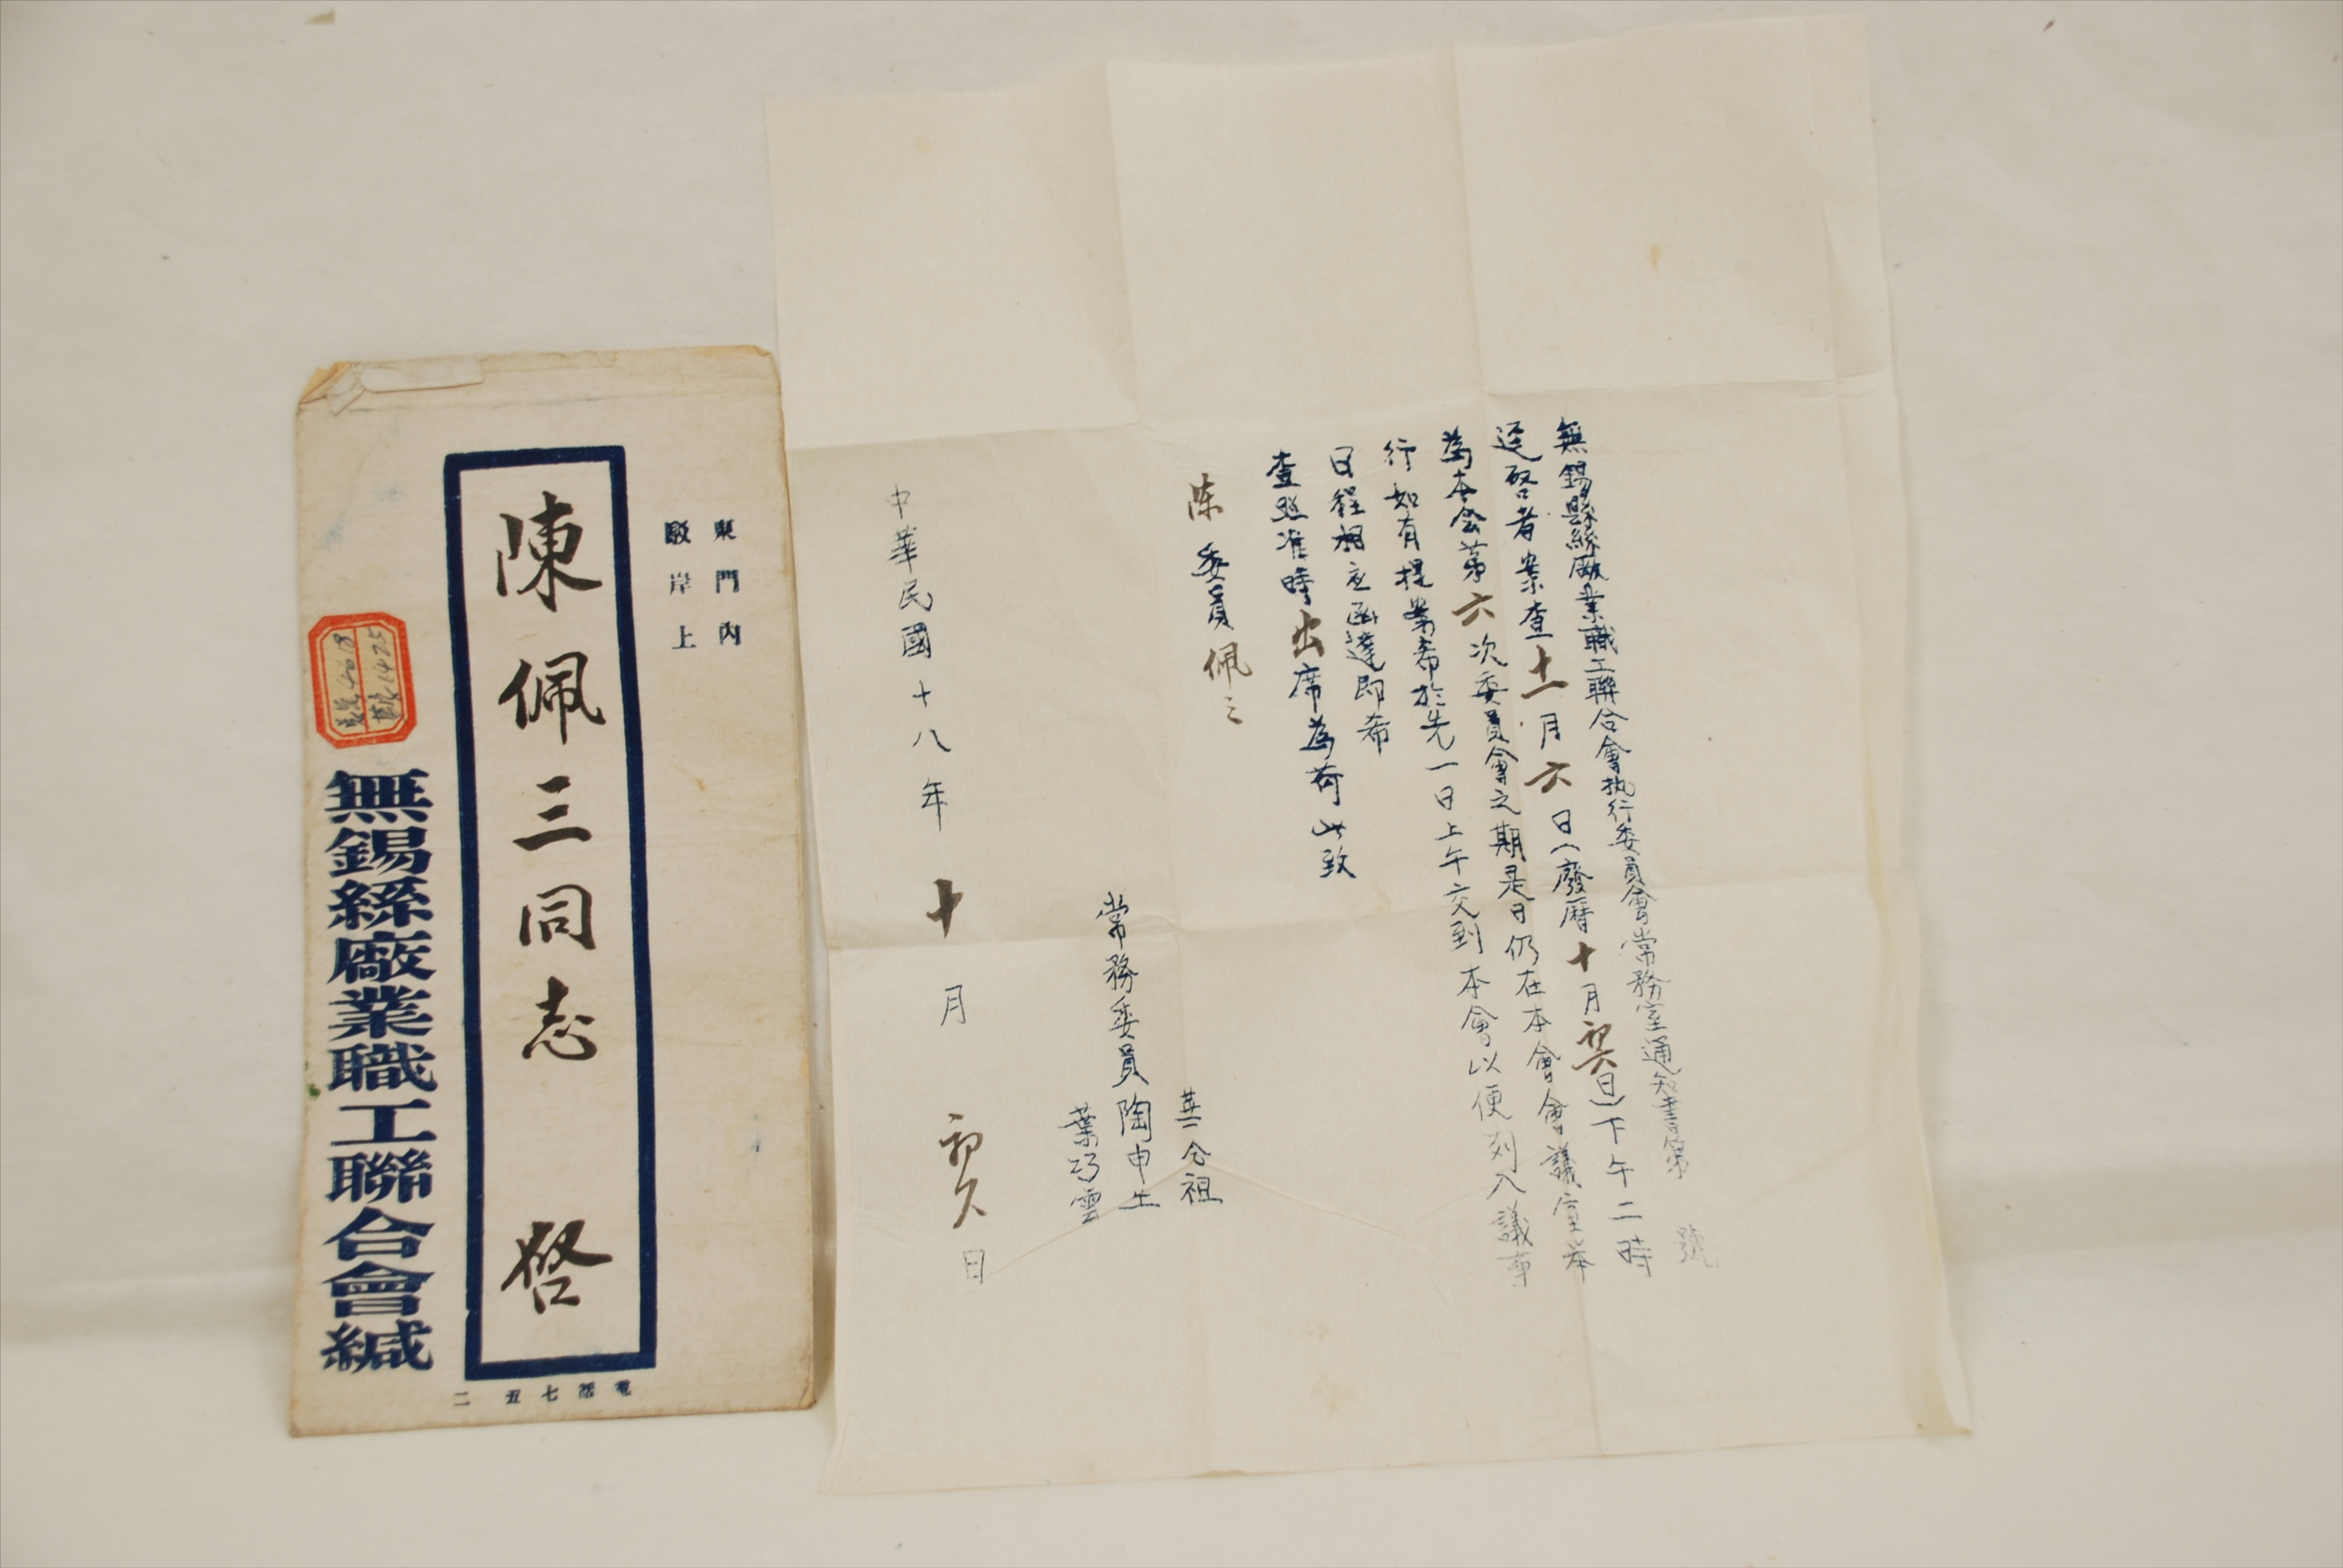 東門內
駁岸上
陳佩三同志 啓
無錫絲廠業職工聯合會緘
電話七五二
總號4618
無錫縣絲廠業職工聯合會执行委員會常務室通知書第 號
逕啓者案查十一月六日(廢曆十月初六日)下午二時
為本会第六次委員會之期是日仍在本會會議室举
行如有提案希於先一日上午交到本會以便列入議事
日程相应函達即希
查照准時出席為荷此致
陈委員佩三
華公祖
常務委員陶申生
葉巧雲
中華民國十八年十月初久日